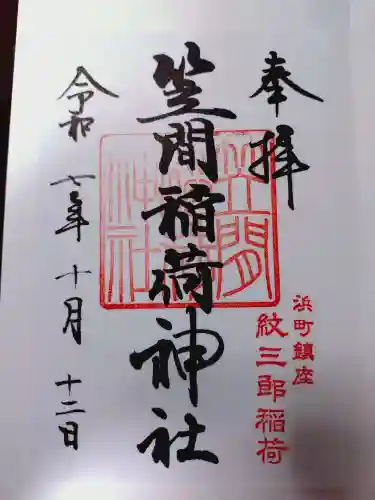 奉拝
浜町鎮座
紋三郎稲荷
笠間稲荷神社
笠間
稲荷
神社
令和七年十月十二日